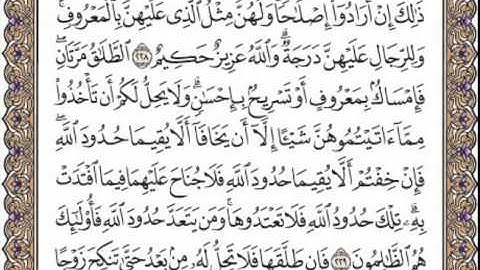 ذَٰلِكَ إِنْ أَرَادُوٓا۟ إِصْلَٰحًا وَلَهُنَّ مِثْلُ ٱلَّذِى عَلَيْهِنَّ بِٱلْمَعْرُوفِ
وَلِلرِّجَالِ عَلَيْهِنَّ دَرَجَةٌ وَٱللَّهُ عَزِيزٌ حَكِيمٌ ٢٢٨ ٱلطَّلَٰقُ مَرَّتَانِ
فَإِمْسَاكٌۢ بِمَعْرُوفٍ أَوْ تَسْرِيحٌۢ بِإِحْسَٰنٍ وَلَا يَحِلُّ لَكُمْ أَن تَأْخُذُوا۟
مِمَّآ ءَاتَيْتُمُوهُنَّ شَيْـًٔا إِلَّآ أَن يَخَافَآ أَلَّا يُقِيمَا حُدُودَ ٱللَّهِ
فَإِنْ خِفْتُمْ أَلَّا يُقِيمَا حُدُودَ ٱللَّهِ فَلَا جُنَاحَ عَلَيْهِمَا فِيمَا ٱفْتَدَتْ
بِهِۦ تِلْكَ حُدُودُ ٱللَّهِ فَلَا تَعْتَدُوهَا وَمَن يَتَعَدَّ حُدُودَ ٱللَّهِ فَأُو۟لَٰٓئِكَ
هُمُ ٱلظَّٰلِمُونَ ٢٢٩ فَإِن طَلَّقَهَا فَلَا تَحِلُّ لَهُۥ مِنۢ بَعْدُ حَتَّىٰ تَنكِحَ زَوْجًا